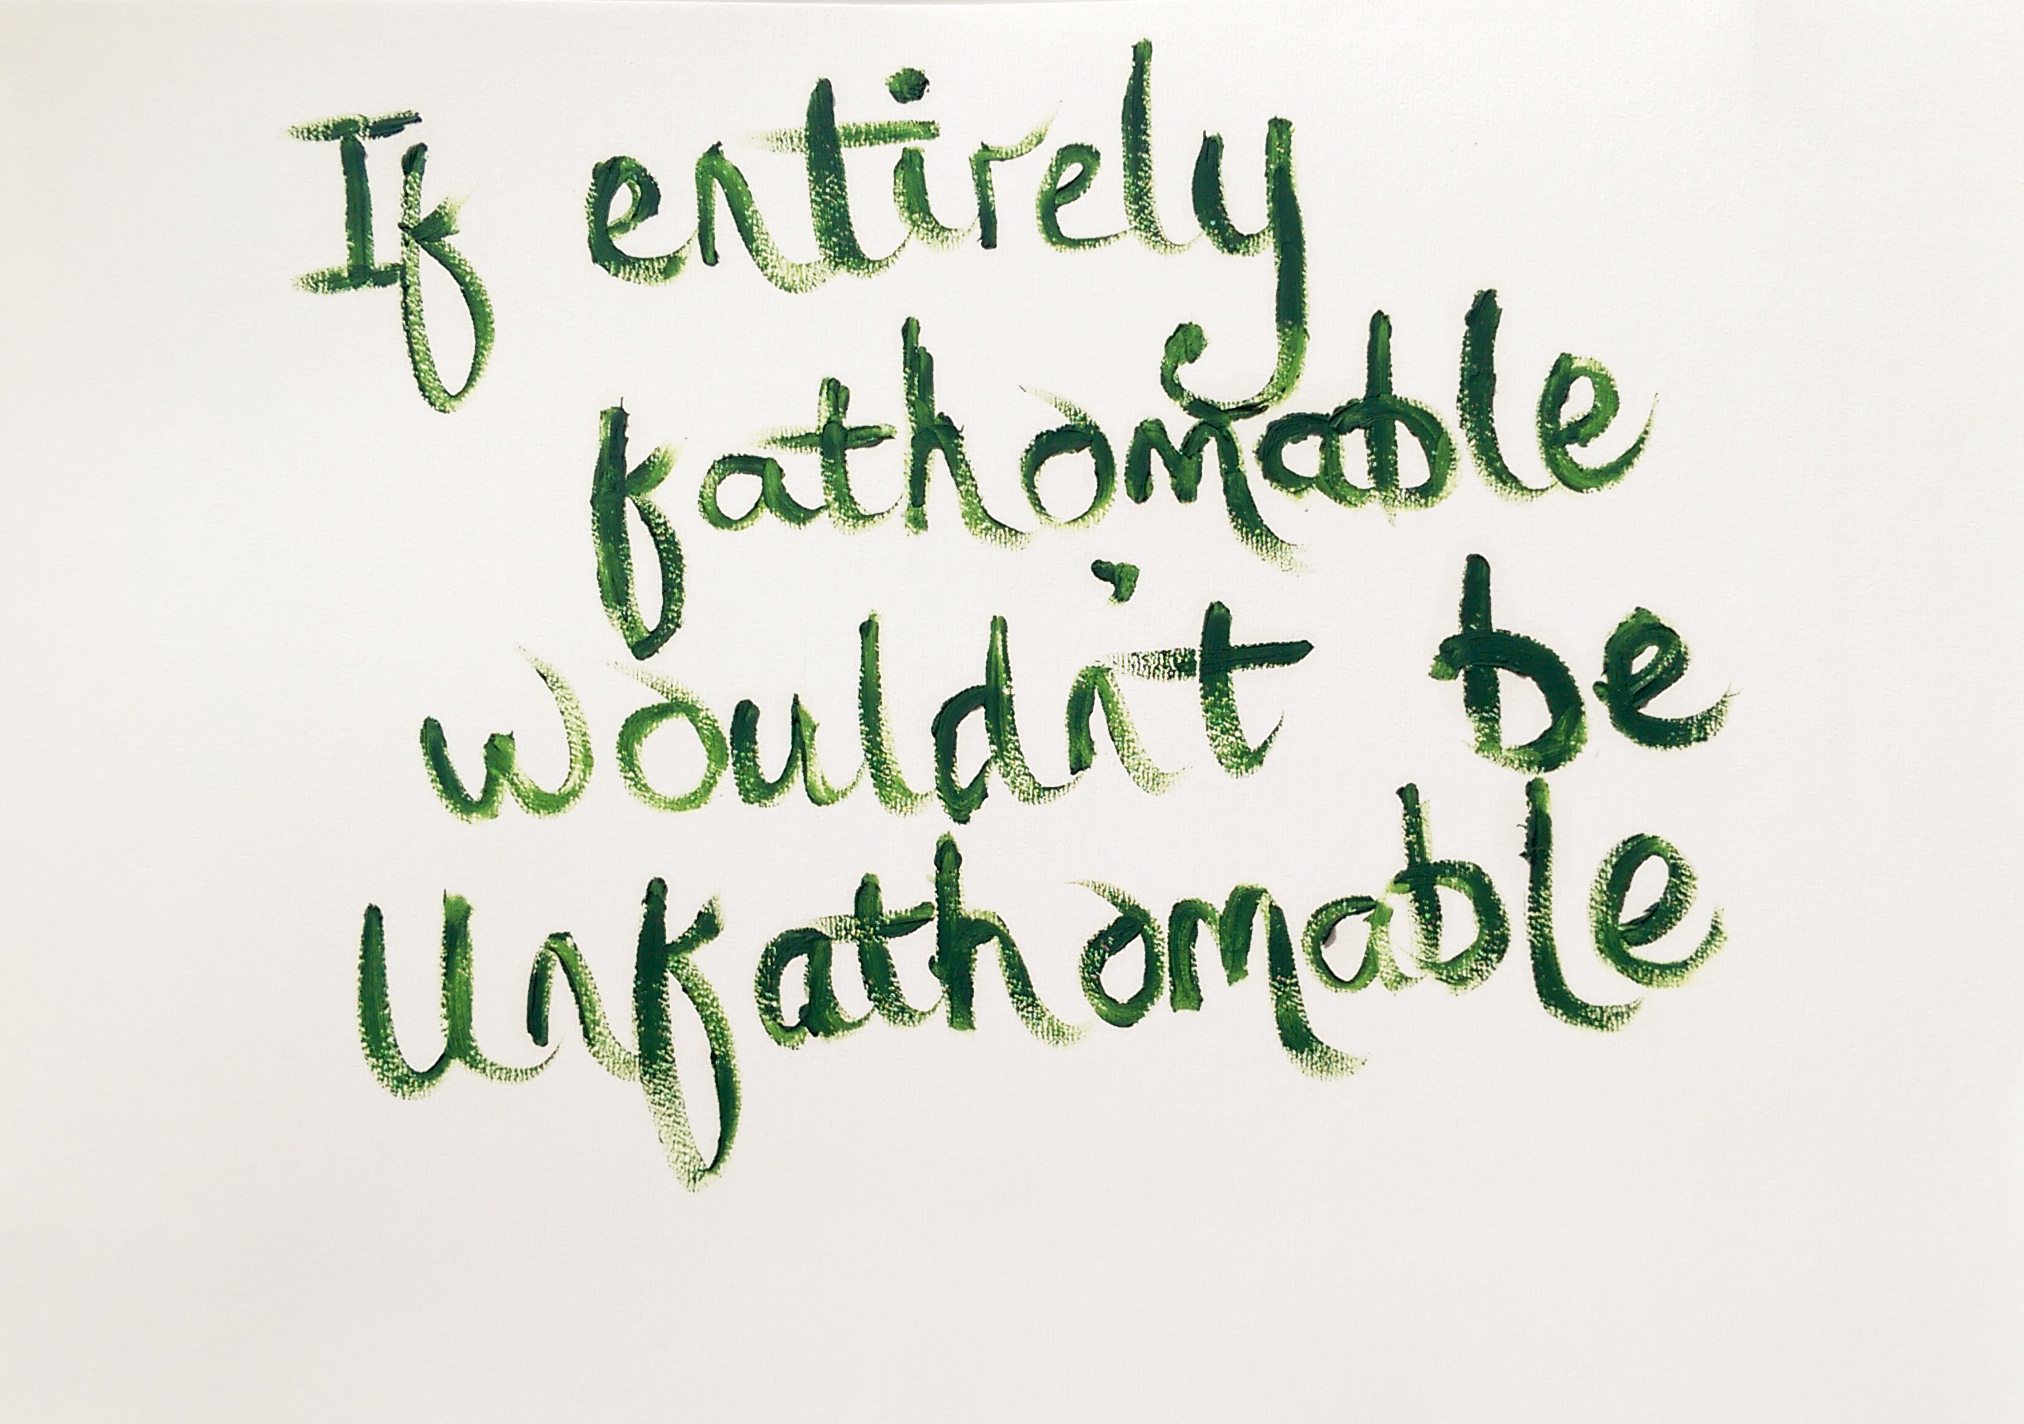 If entirely
fathomable
wouldn't be
Unfathomable